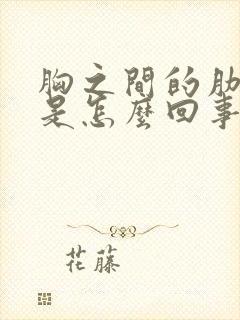 胸之間的肋
是怎麼回事
花藤